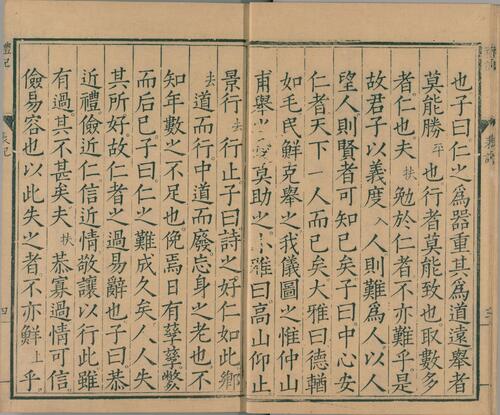 也子曰仁之爲器重其爲道遠舉者
莫能勝平也行者莫能致也取數多
者仁也夫扶勉於仁者不亦難乎是
故君子以義度入人則難爲人以人
望人則賢者可知已矣子曰中心安
仁者天下一人而已矣大雅曰德輶
如毛民鮮克舉之我儀圖之惟仲山
甫舉之愛莫助之小雅曰高山仰止
景行去行止子曰詩之好仁如此鄉
去道而行中道而廢忘身之老也不
知年數之不足也俛焉日有孳孳斃
而后已子曰仁之難成久矣人人失
其所好故仁者之過易辭也子曰恭
近禮儉近仁信近情敬讓以行此雖
有過其不甚矣夫扶恭寡過情可信
儉易容也以此失之者不亦鮮上乎
禮記 表記 四